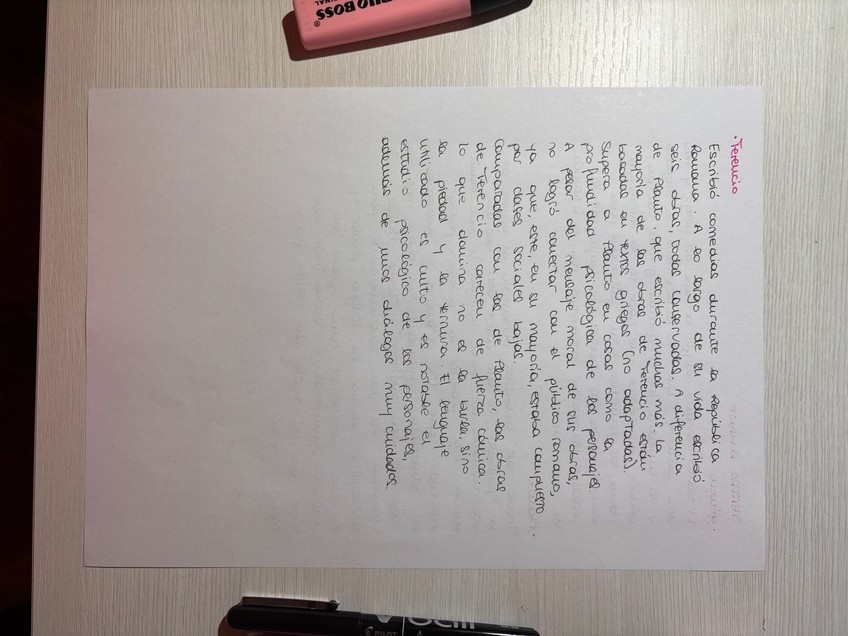 · Terencio
Escribió comedias durante la República
Romana. A lo largo de su vida escribió
seis obras, todas conservadas. A diferencia
de Plauto, que escribió muchas más. La
mayoría de las obras de Terencio están
basadas en textos griegos (no adaptadas).
Supera a Plauto en cosas como la
profundidad psicológica de los personajes
A pesar del mensaje moral de sus obras,
no logró conectar con el público romano,
ya que, este, en su mayoría, estaba compuesto
por clases sociales bajas.
Comparadas con las de Plauto, las obras
de Terencio carecen de fuerza cómica.
lo que domina no es la burla, sino
la piedad y la ternura. El lenguaje
utilizado es culto y es notable el
estudio psicológico de los personajes,
además de unos diálogos muy cuidados.
BOSS
ORIGINAL
PILOT